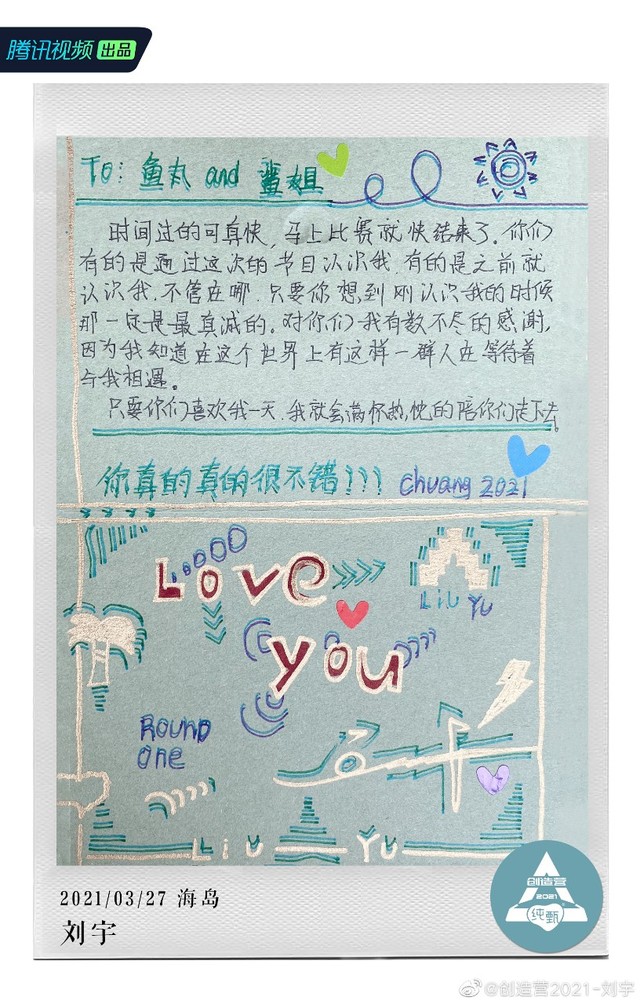 腾讯视频 出品
To: 鱼丸 and 鲨姐
时间过的可真快,马上比赛就快结束了。你们
有的是通过这次的节目认识我,有的是之前就
认识我,不管在哪,只要你想到刚认识我的时候
那一定是最真诚的。对你们我有数不尽的感谢,
因为我知道在这个世界上有这样一群人在等待着
与我相遇。
只要你们喜欢我一天,我就会满怀热忱的陪你们走下去。
你真的真的很不错!!!  Chuang 2021
Love
You
LiU YU
ROUND
one
LiU YU
2021/03/27 海岛
刘宇
创造营
2021
纯甄
@创造营2021-刘宇